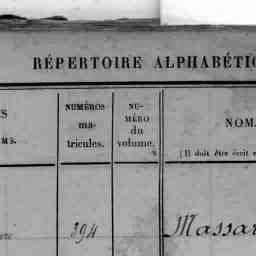 RÉPERTOIRE ALPHABÉTI
NUMÉROS
ma-
tricules.
NU-
MÉRO
du
volume.
NOM
MS.
(Il doit être écrit
394
Massar